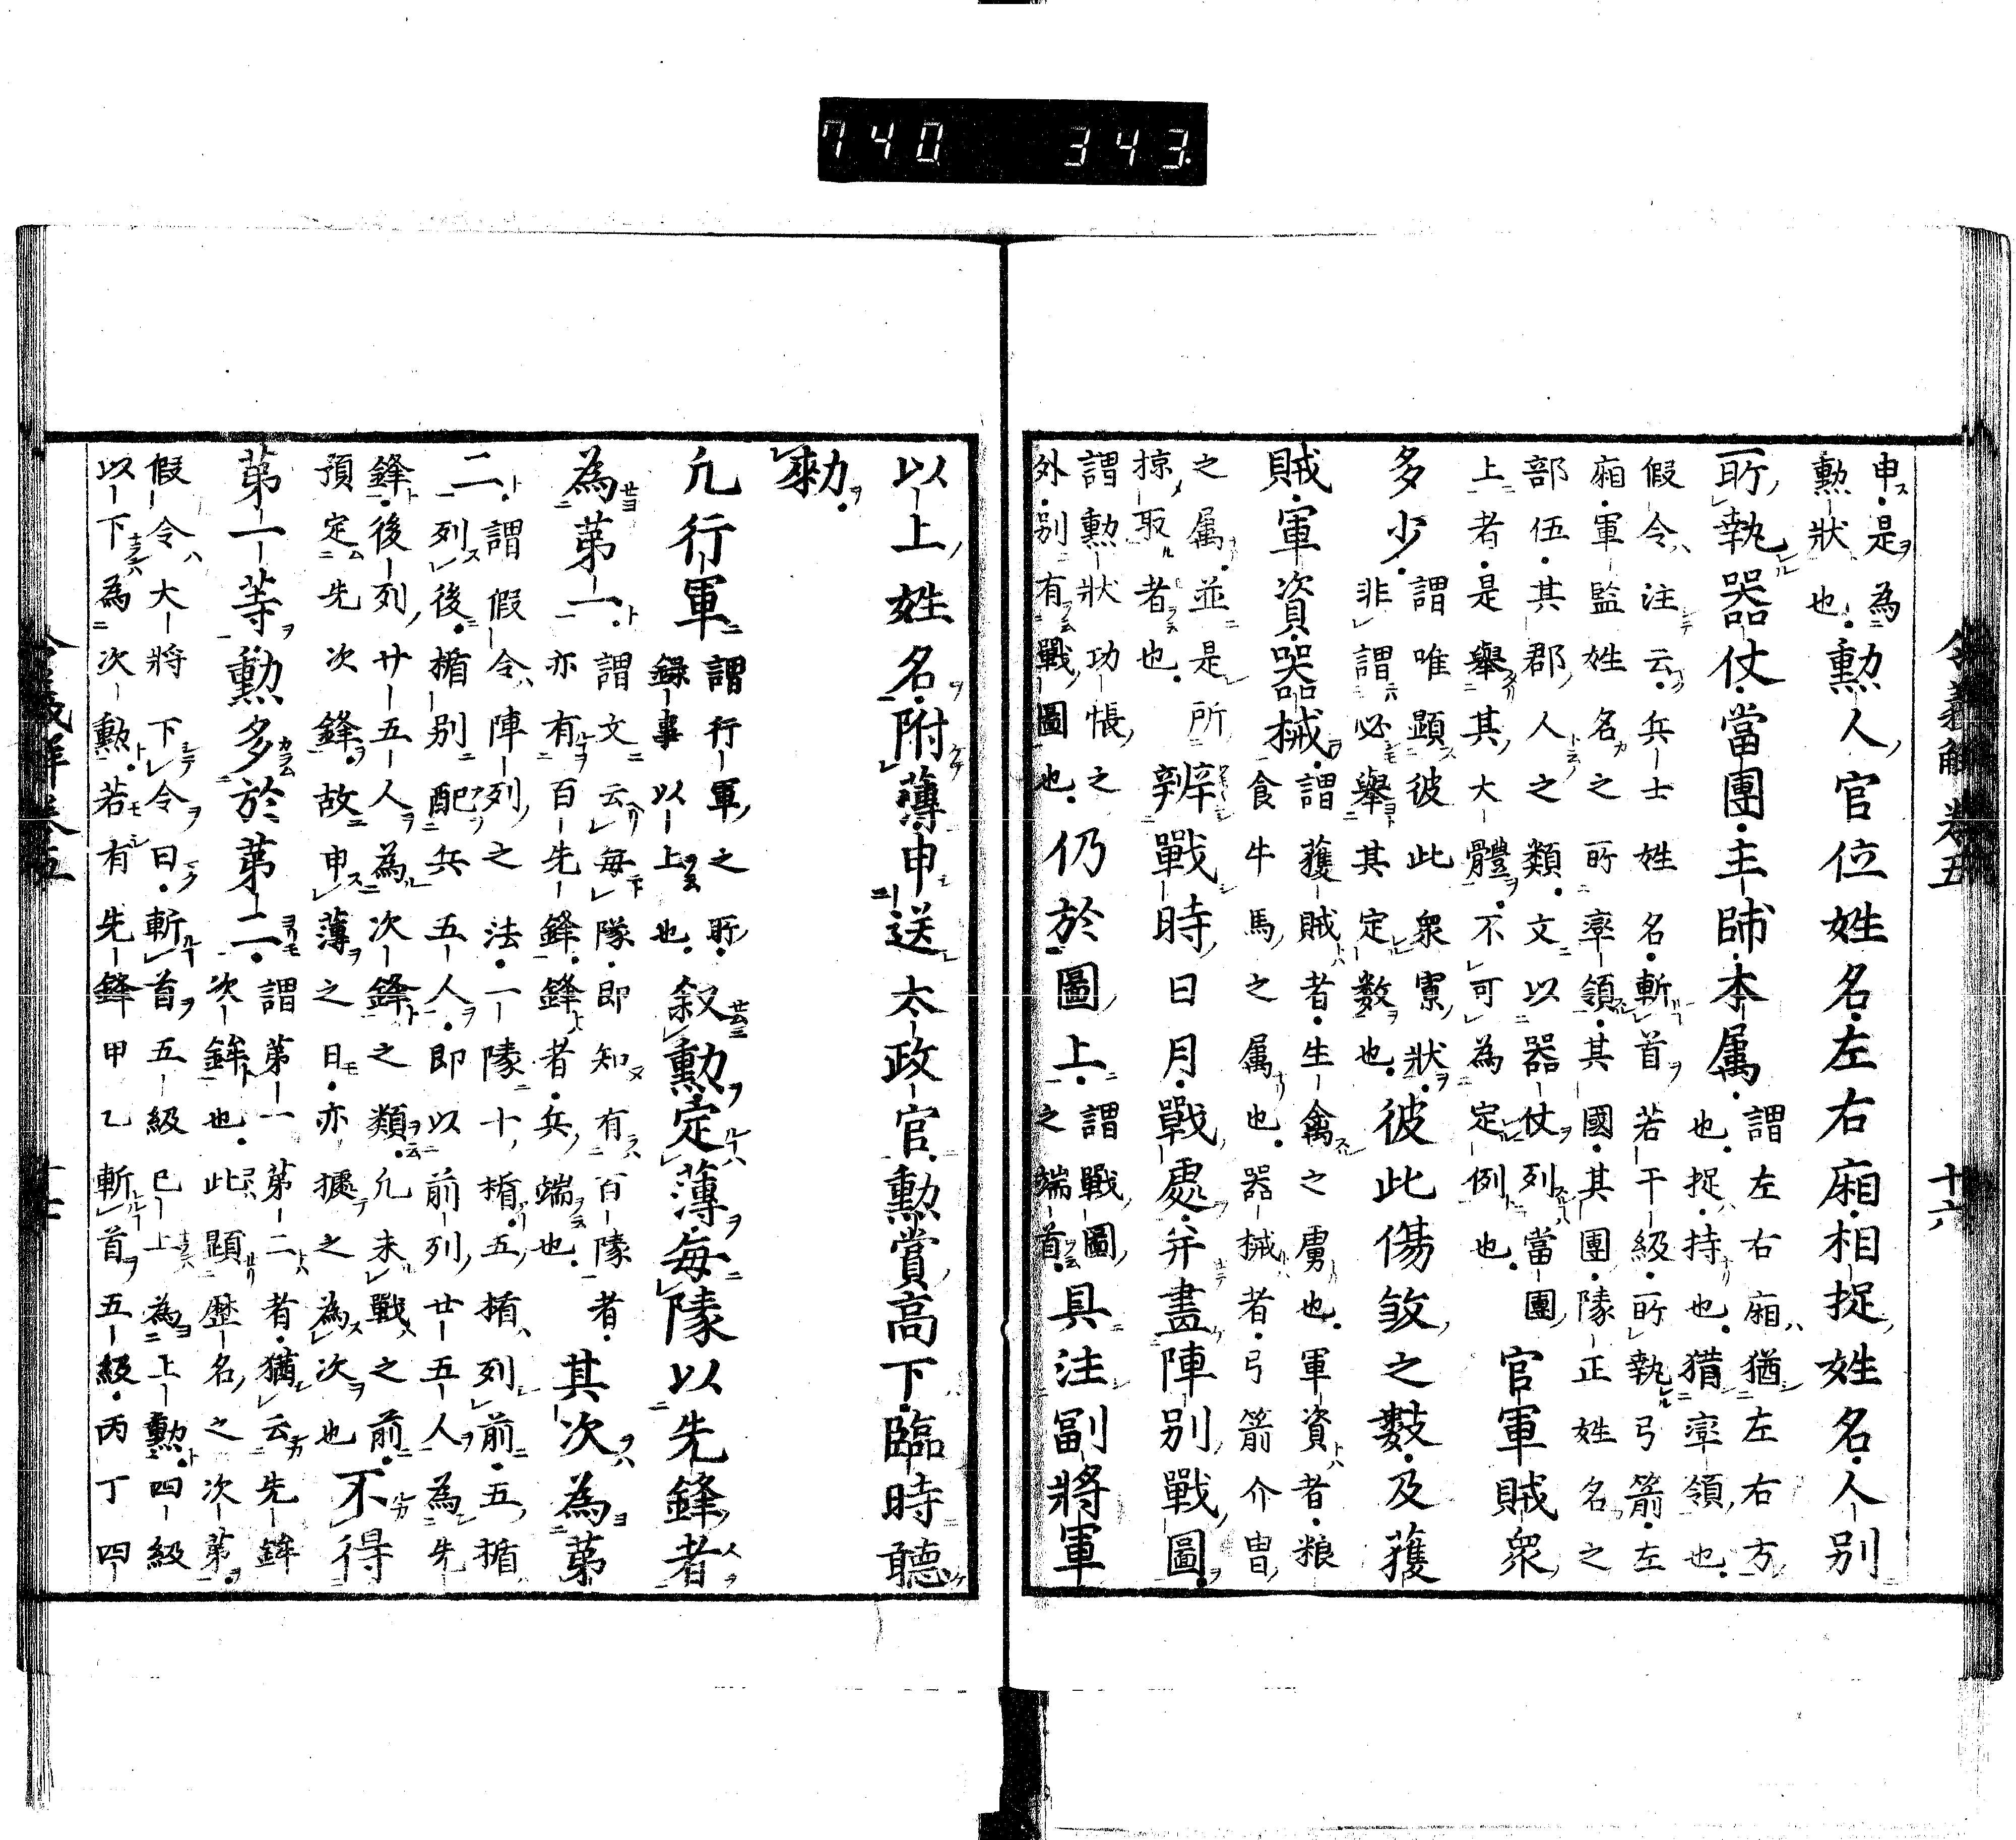 740 343
令義解 卷五 十六
申是為
勲狀也
勲人官位姓名左右廂相捉姓名人別
所執器仗當團主師本属
謂左右廂猶左右方
也捉持也猶率領也
假令注云兵士姓名斬首若干級所執弓箭左
廂軍監姓名之所率領其國其團隊正姓名之
部伍其郡人之類文以器仗列當團
上者是舉其大體不可為定例也
官軍賊衆
多少
謂唯顕彼此衆寡狀
非謂必舉其定数也
彼此傷敛之數及獲
賊軍資器械
謂獲賊者生禽之虜也軍資者粮
食牛馬之属也器械者弓箭介冑
之属並是所
掠取者也
辨戰時日月戰處并畫陣別戰圖
謂勲狀功帳之
外別有戰圖也
仍於圖上
謂戰圖
之端首
具注副將軍
以上姓名附薄申送太政官勲賞高下臨時聽
勅
凢行軍
謂行軍之所
録事以上也
叙勲定薄毎隊以先鋒者
為第一
謂文云毎隊即知有百隊者
亦有百先鋒鋒者兵端也
其次為第
二
謂假令陣列之法一隊十楯五楯列前五楯
列後楯別配兵五人即以前列廿五人為先
鋒後列廿五人為次鋒之類凢未戰之前
預定先次鋒故申薄之日亦據之為次也
不得
第一等勲多於第二
謂第一第二者猶云先鋒
次鋒也此顕歴名之次第
假令大將下令曰斬首五級已上為上勲四級
以下為次勲若有先鋒甲乙斬首五級丙丁四